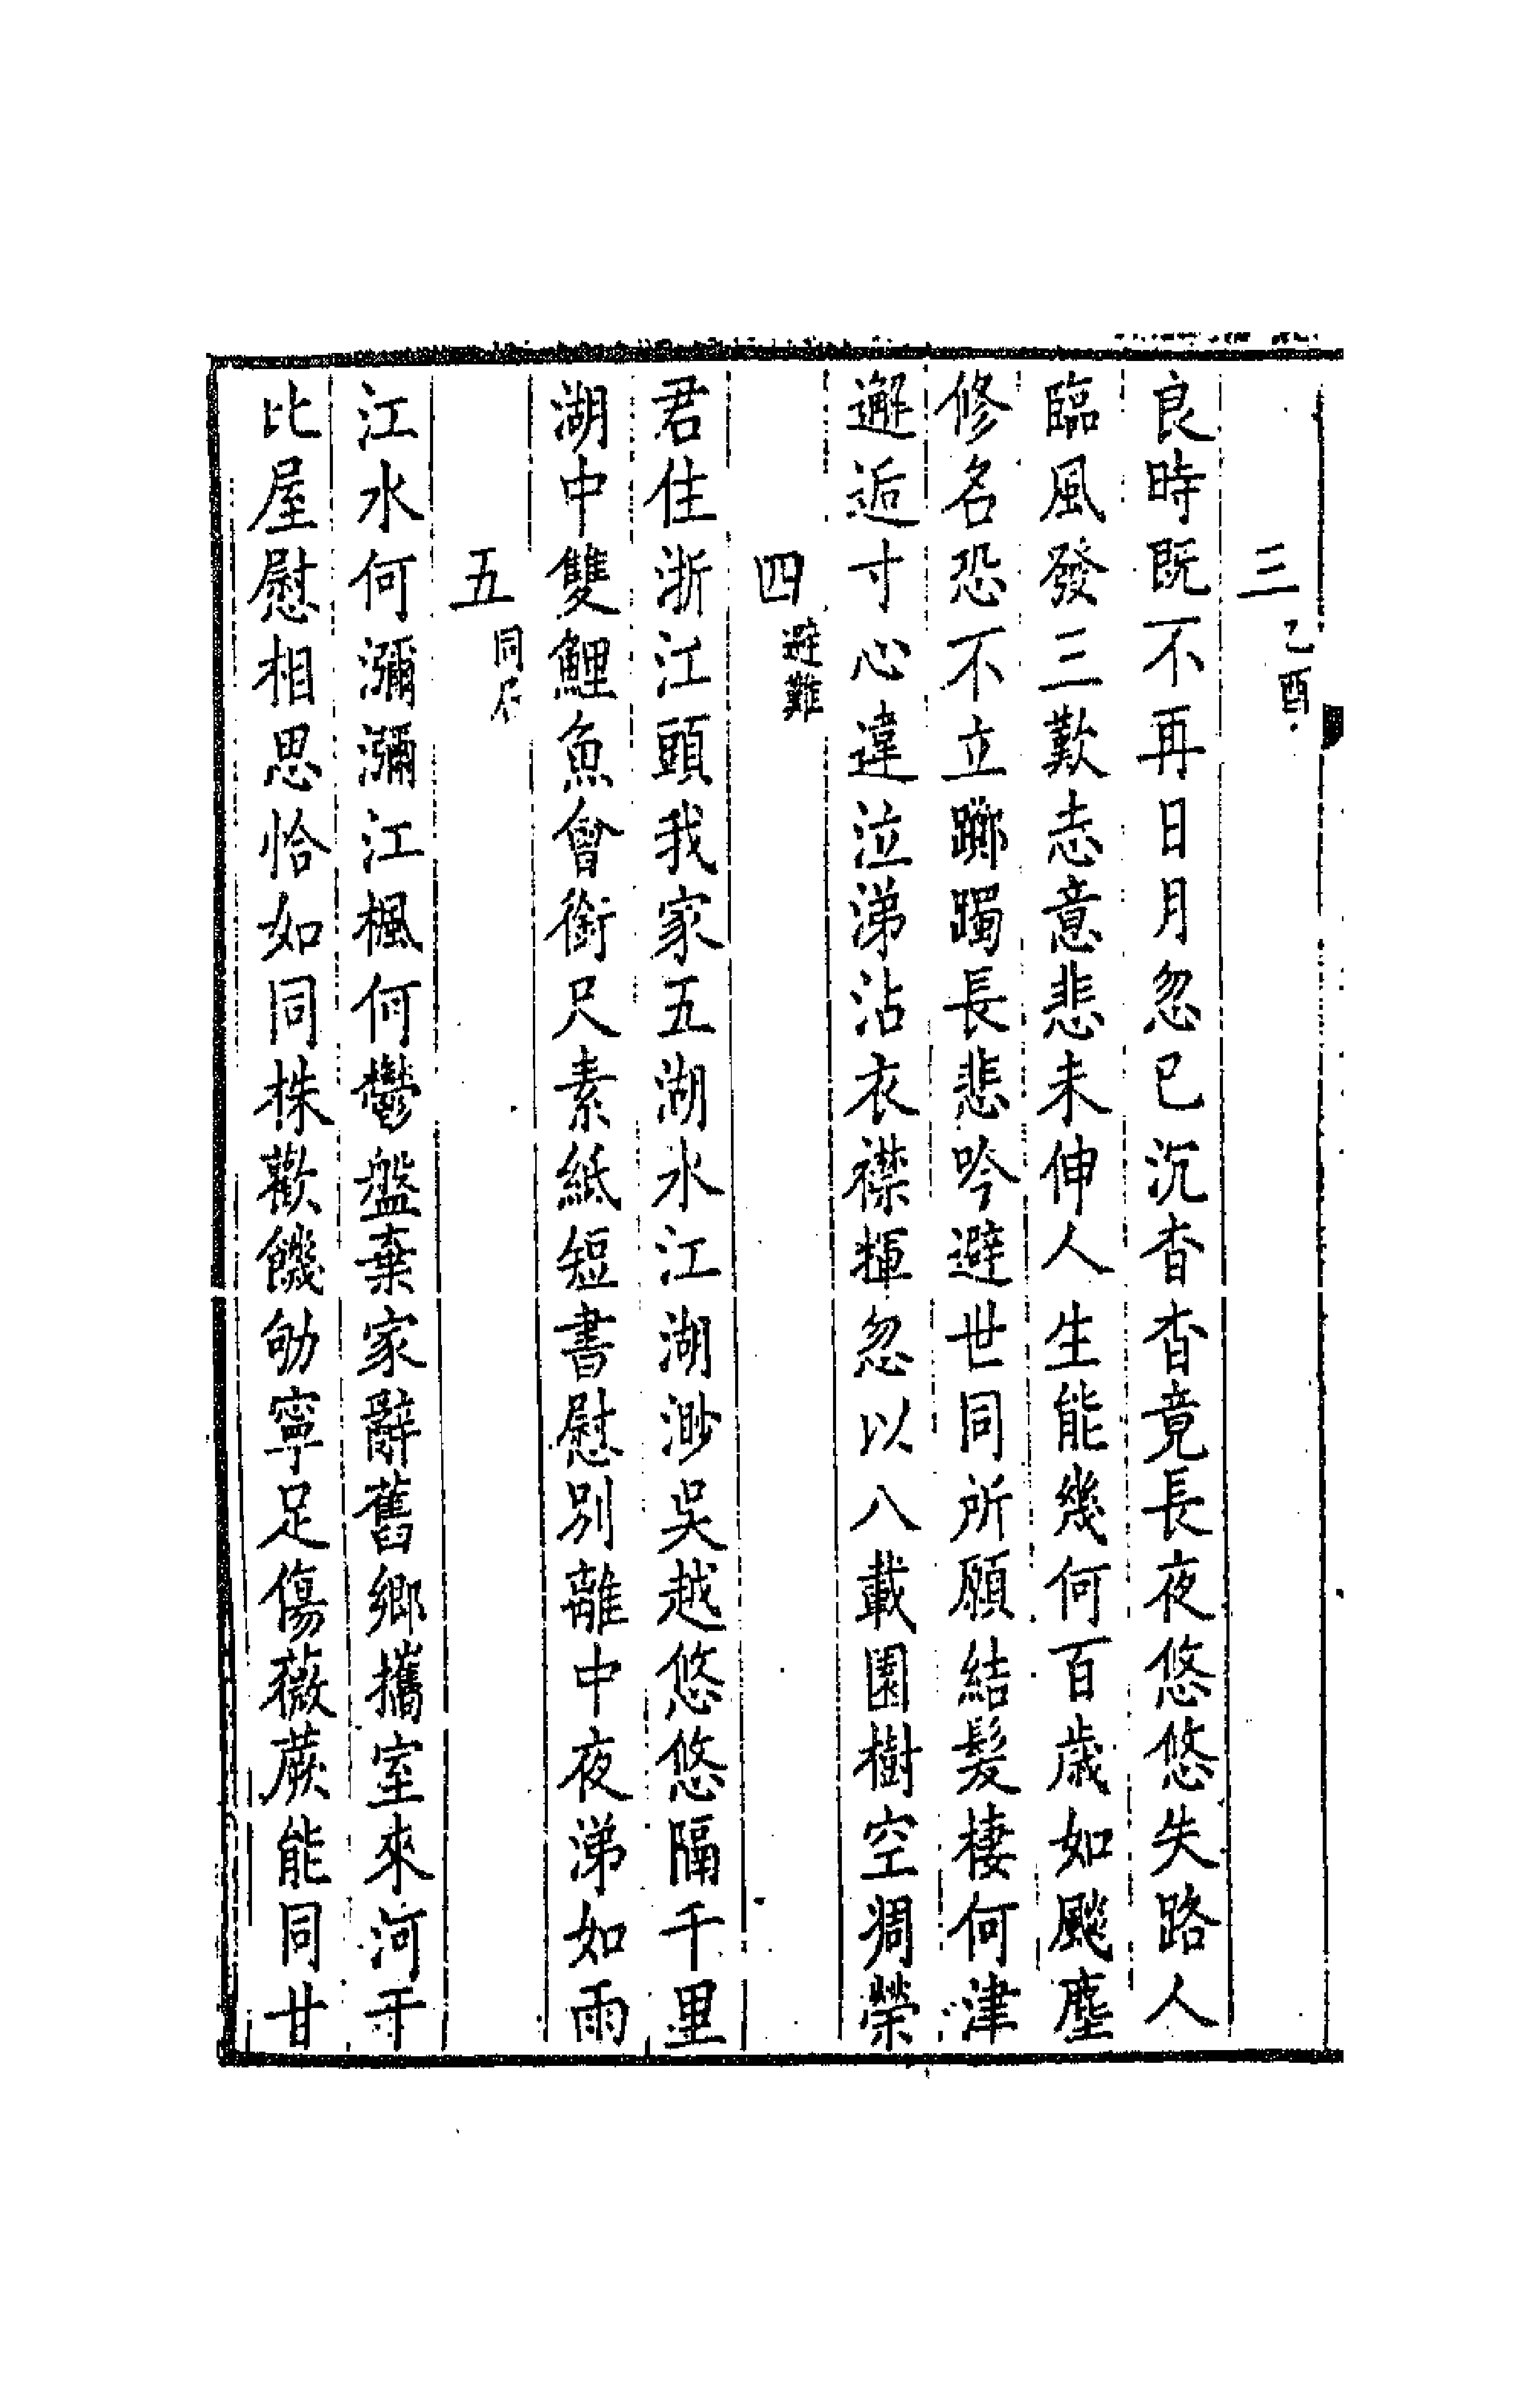 三 乙酉
良時既不再日月忽已沉杳杳竟長夜悠悠失路人
臨風發三歎志意悲未伸人生能幾何百歲如飈塵
修名恐不立躑躅長悲吟避世同所願結髮棲何津
邂逅寸心違泣涕沾衣襟揮忽以八載園樹空凋榮
四 避難
君住浙江頭我家五湖水江湖渺吳越悠悠隔千里
湖中雙鯉魚會銜尺素紙短書慰別離中夜涕如雨
五 同居
江水何瀰瀰江楓何鬱盤棄家辭舊鄉攜室來河干
比屋慰相思恰如同株歡饑劬寧足傷薇蕨能同甘